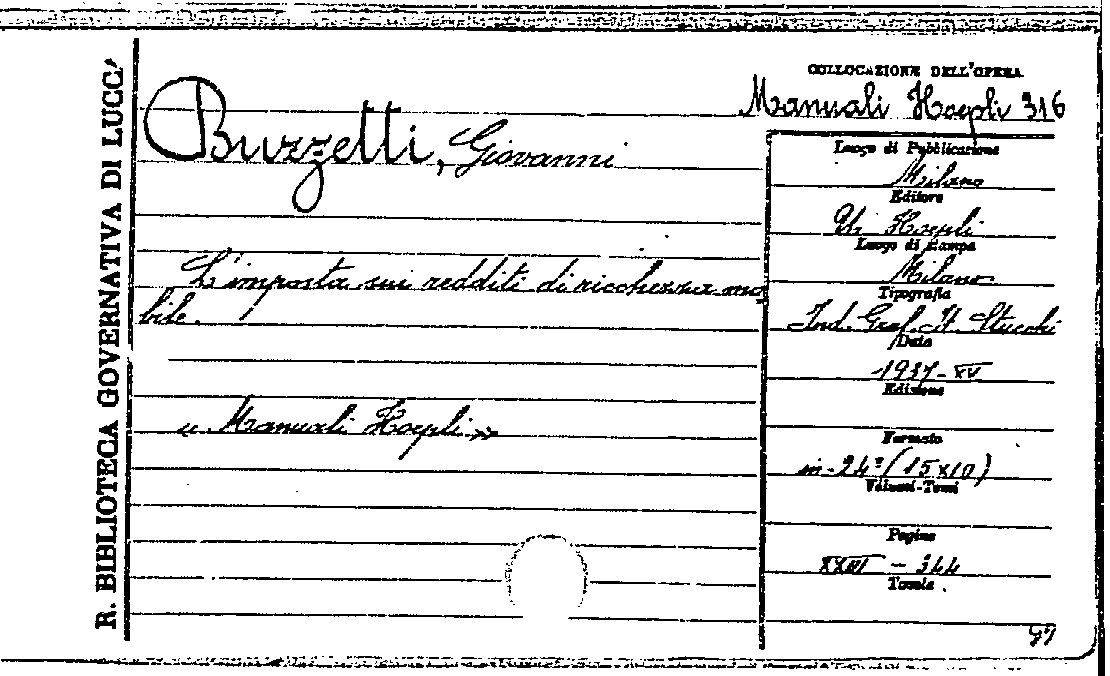 R. BIBLIOTECA GOVERNATIVA DI LUCC
COLLOCAZIONE DELL'OPERA
Manuali Hoepli 316
Buzzetti, Giovanni
L'imposta sui redditi di ricchezza mo
bile.
« Manuali Hoepli »
Luogo di Pubblicazione
Milano
Editore
U. Hoepli
Luogo di stampa
Milano
Tipografia
Ind. Graf. It. Stucchi
Data
1937 - XV
Edizione
Formato
in-24° (15x10)
Volumi-Tomi
Pagine
XXIII - 344
Tavole